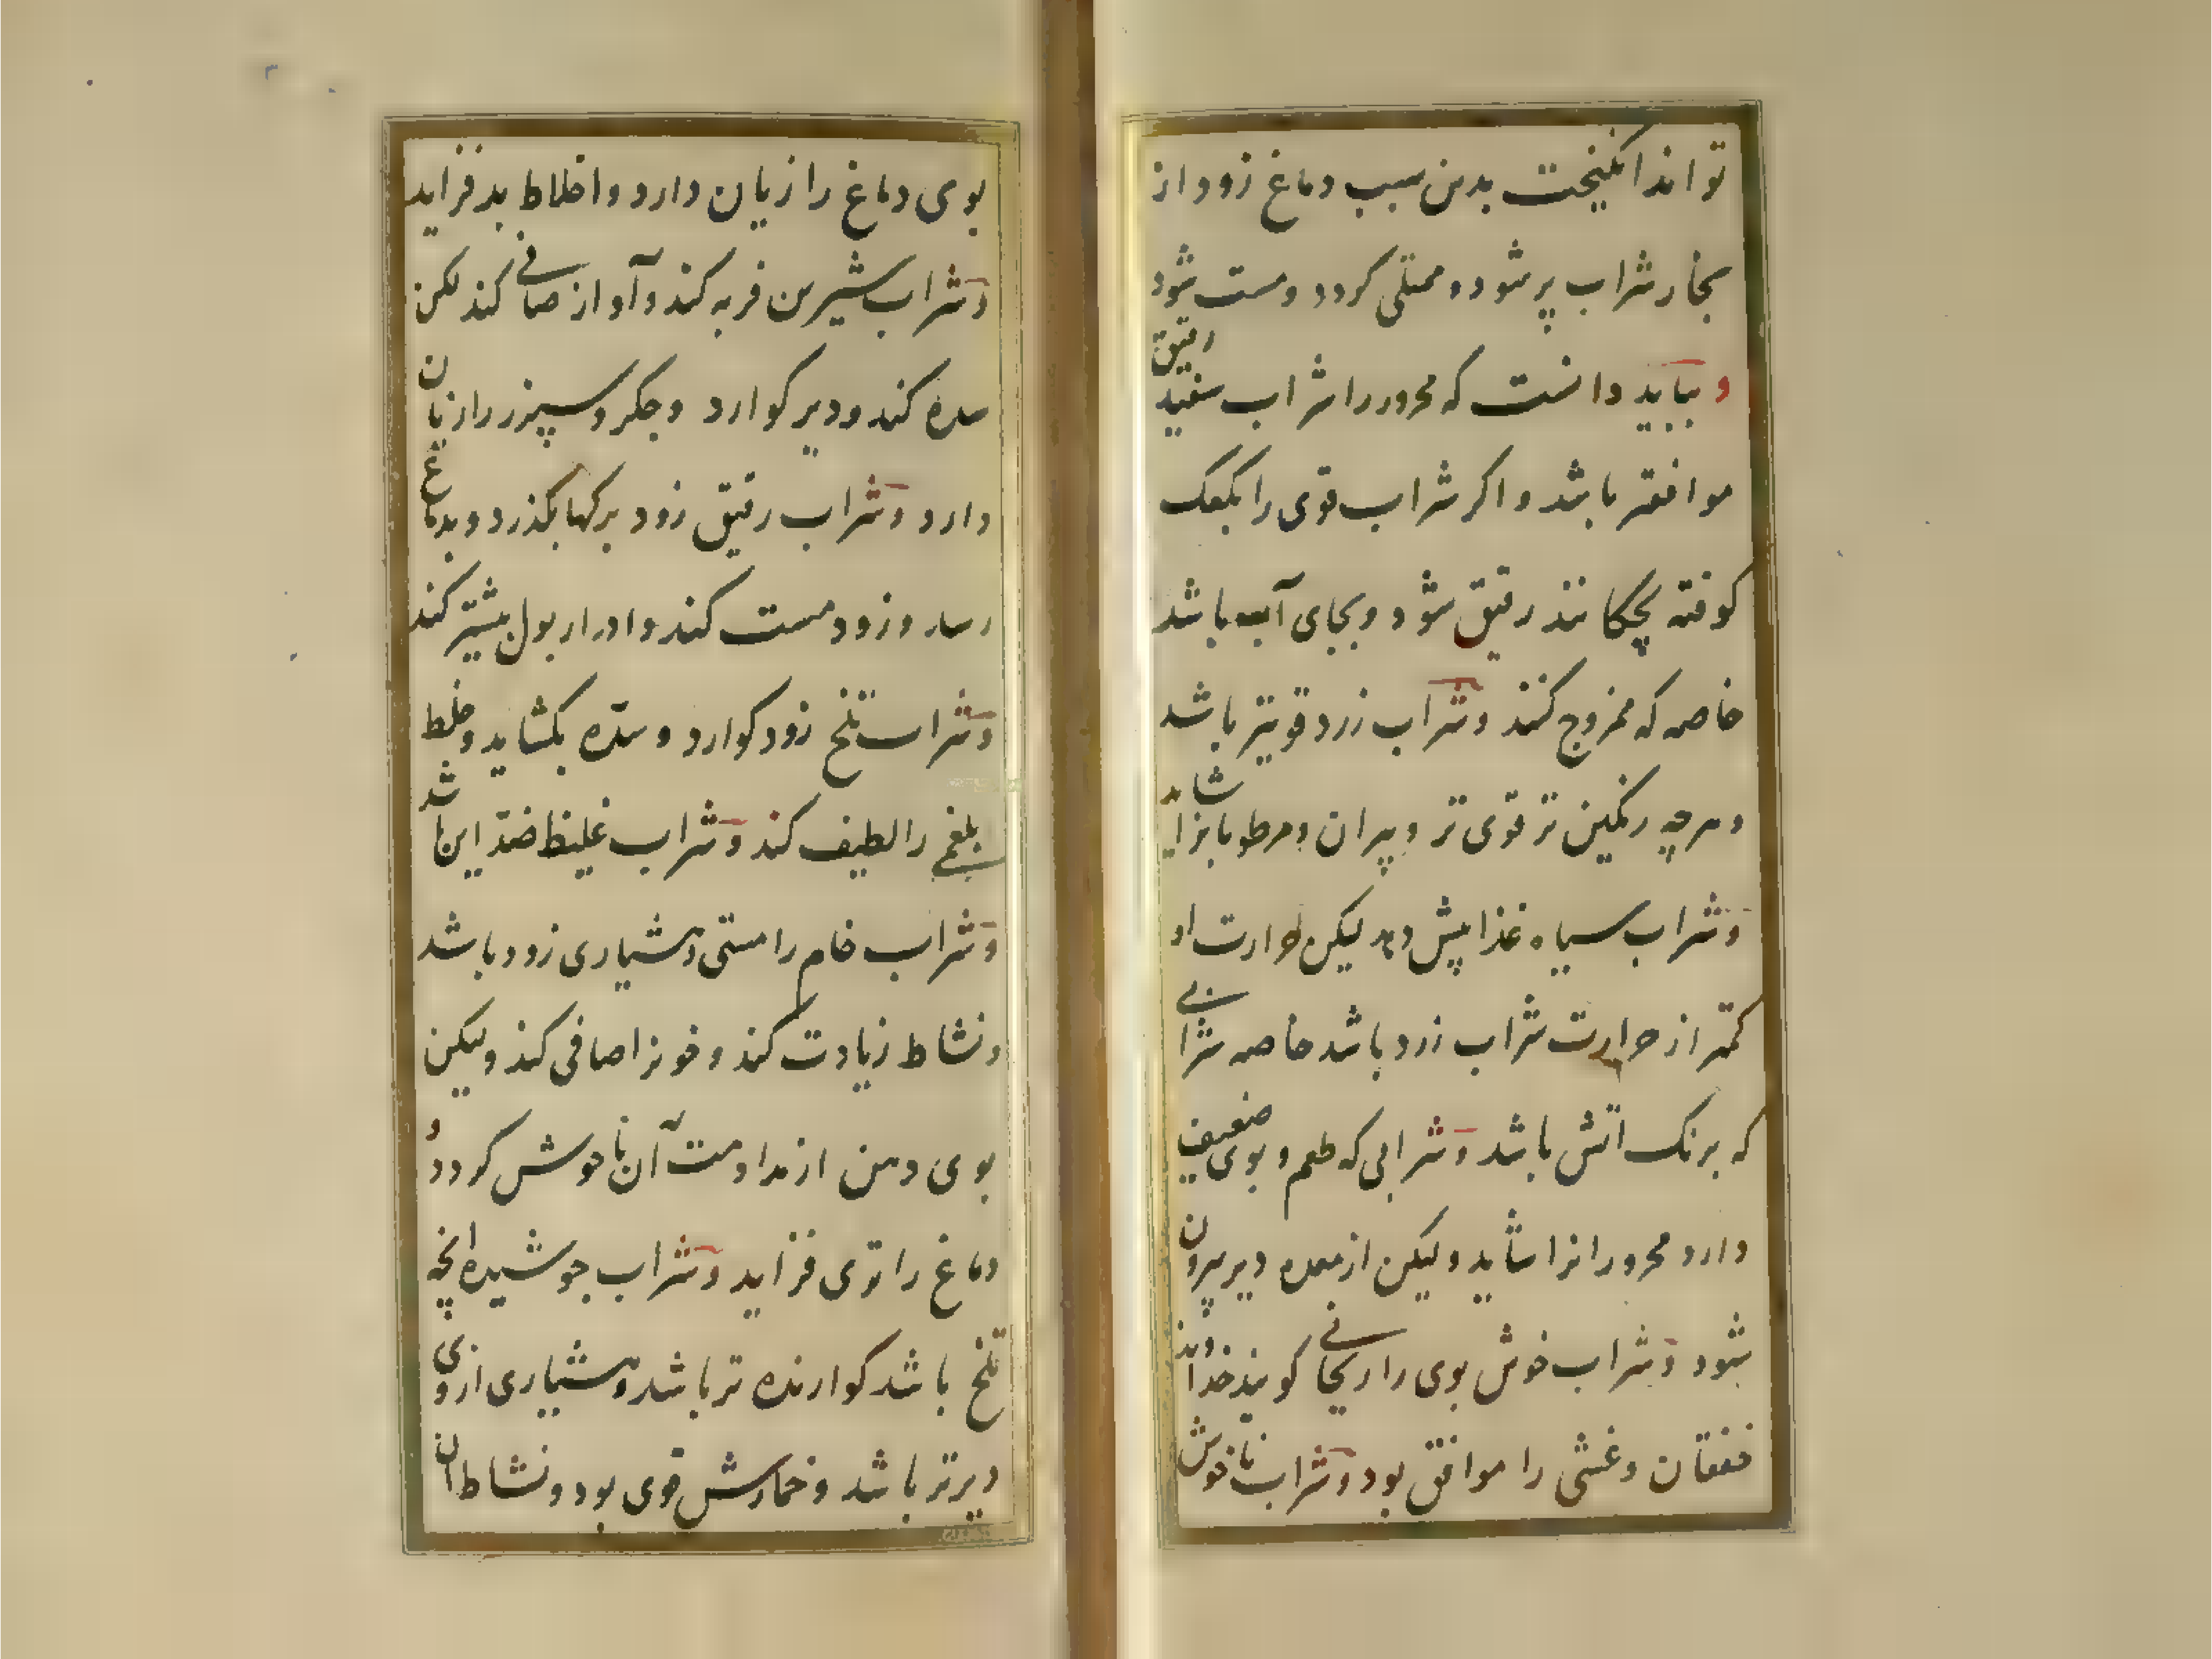 تواند انکیخت بدین سبب دماغ زود از
بخار شراب پر شود و ممتلی کردد و مست شود
و بباید دانست که محرور را شراب سفید رقیق
موافقتر باشد و اکر شراب قوی را بکعک
کوفته بچکانند رقیق شود و بجای آب باشد
خاصه که ممزوج کنند و شراب زرد قویتر باشد
و هرچه رنکین تر قوی تر و پیران و مرطوبانرا شاید
و شراب سیاه غذا بیش دهد لیکن حرارت او
کمتر از حرارت شراب زرد باشد خاصه شرابی
که برنک اتش باشد و شرابی که طعم و بوی ضعیف
دارد محرورانرا شاید ولیکن از معده دیر بیرون
شود و شراب خوش بوی را ریحانی کویند خداوند
خفقان و غشی را موافق بود و شراب ناخوش
بوی دماغ را زیان دارد و اخلاط بد فزاید
و شراب شیرین فربه کند و آواز صافی کند لکن
سده کند و دیر کوارد و جکر و سپرز را زیان
دارد و شراب رقیق زود برکها بکذرد و بدماغ
رسد و زود مست کند و ادرار بول بیشتر کند
و شراب تلخ زود کوارد و سدّه بکشاید و خلط
بلغمی را لطیف کند و شراب غلیظ ضدّ این باشد
و شراب خام را مستی و هشیاری زود باشد
و نشاط زیادت کند و خونرا صافی کند ولیکن
بوی دهن از مداومت آن ناخوش کردد و
دماغ را تری فزاید و شراب جوشیده انچه
تلخ باشد کوارنده تر باشد و هشیاری از وی
دیرتر باشد و خمارش قوی بود و نشاط ان